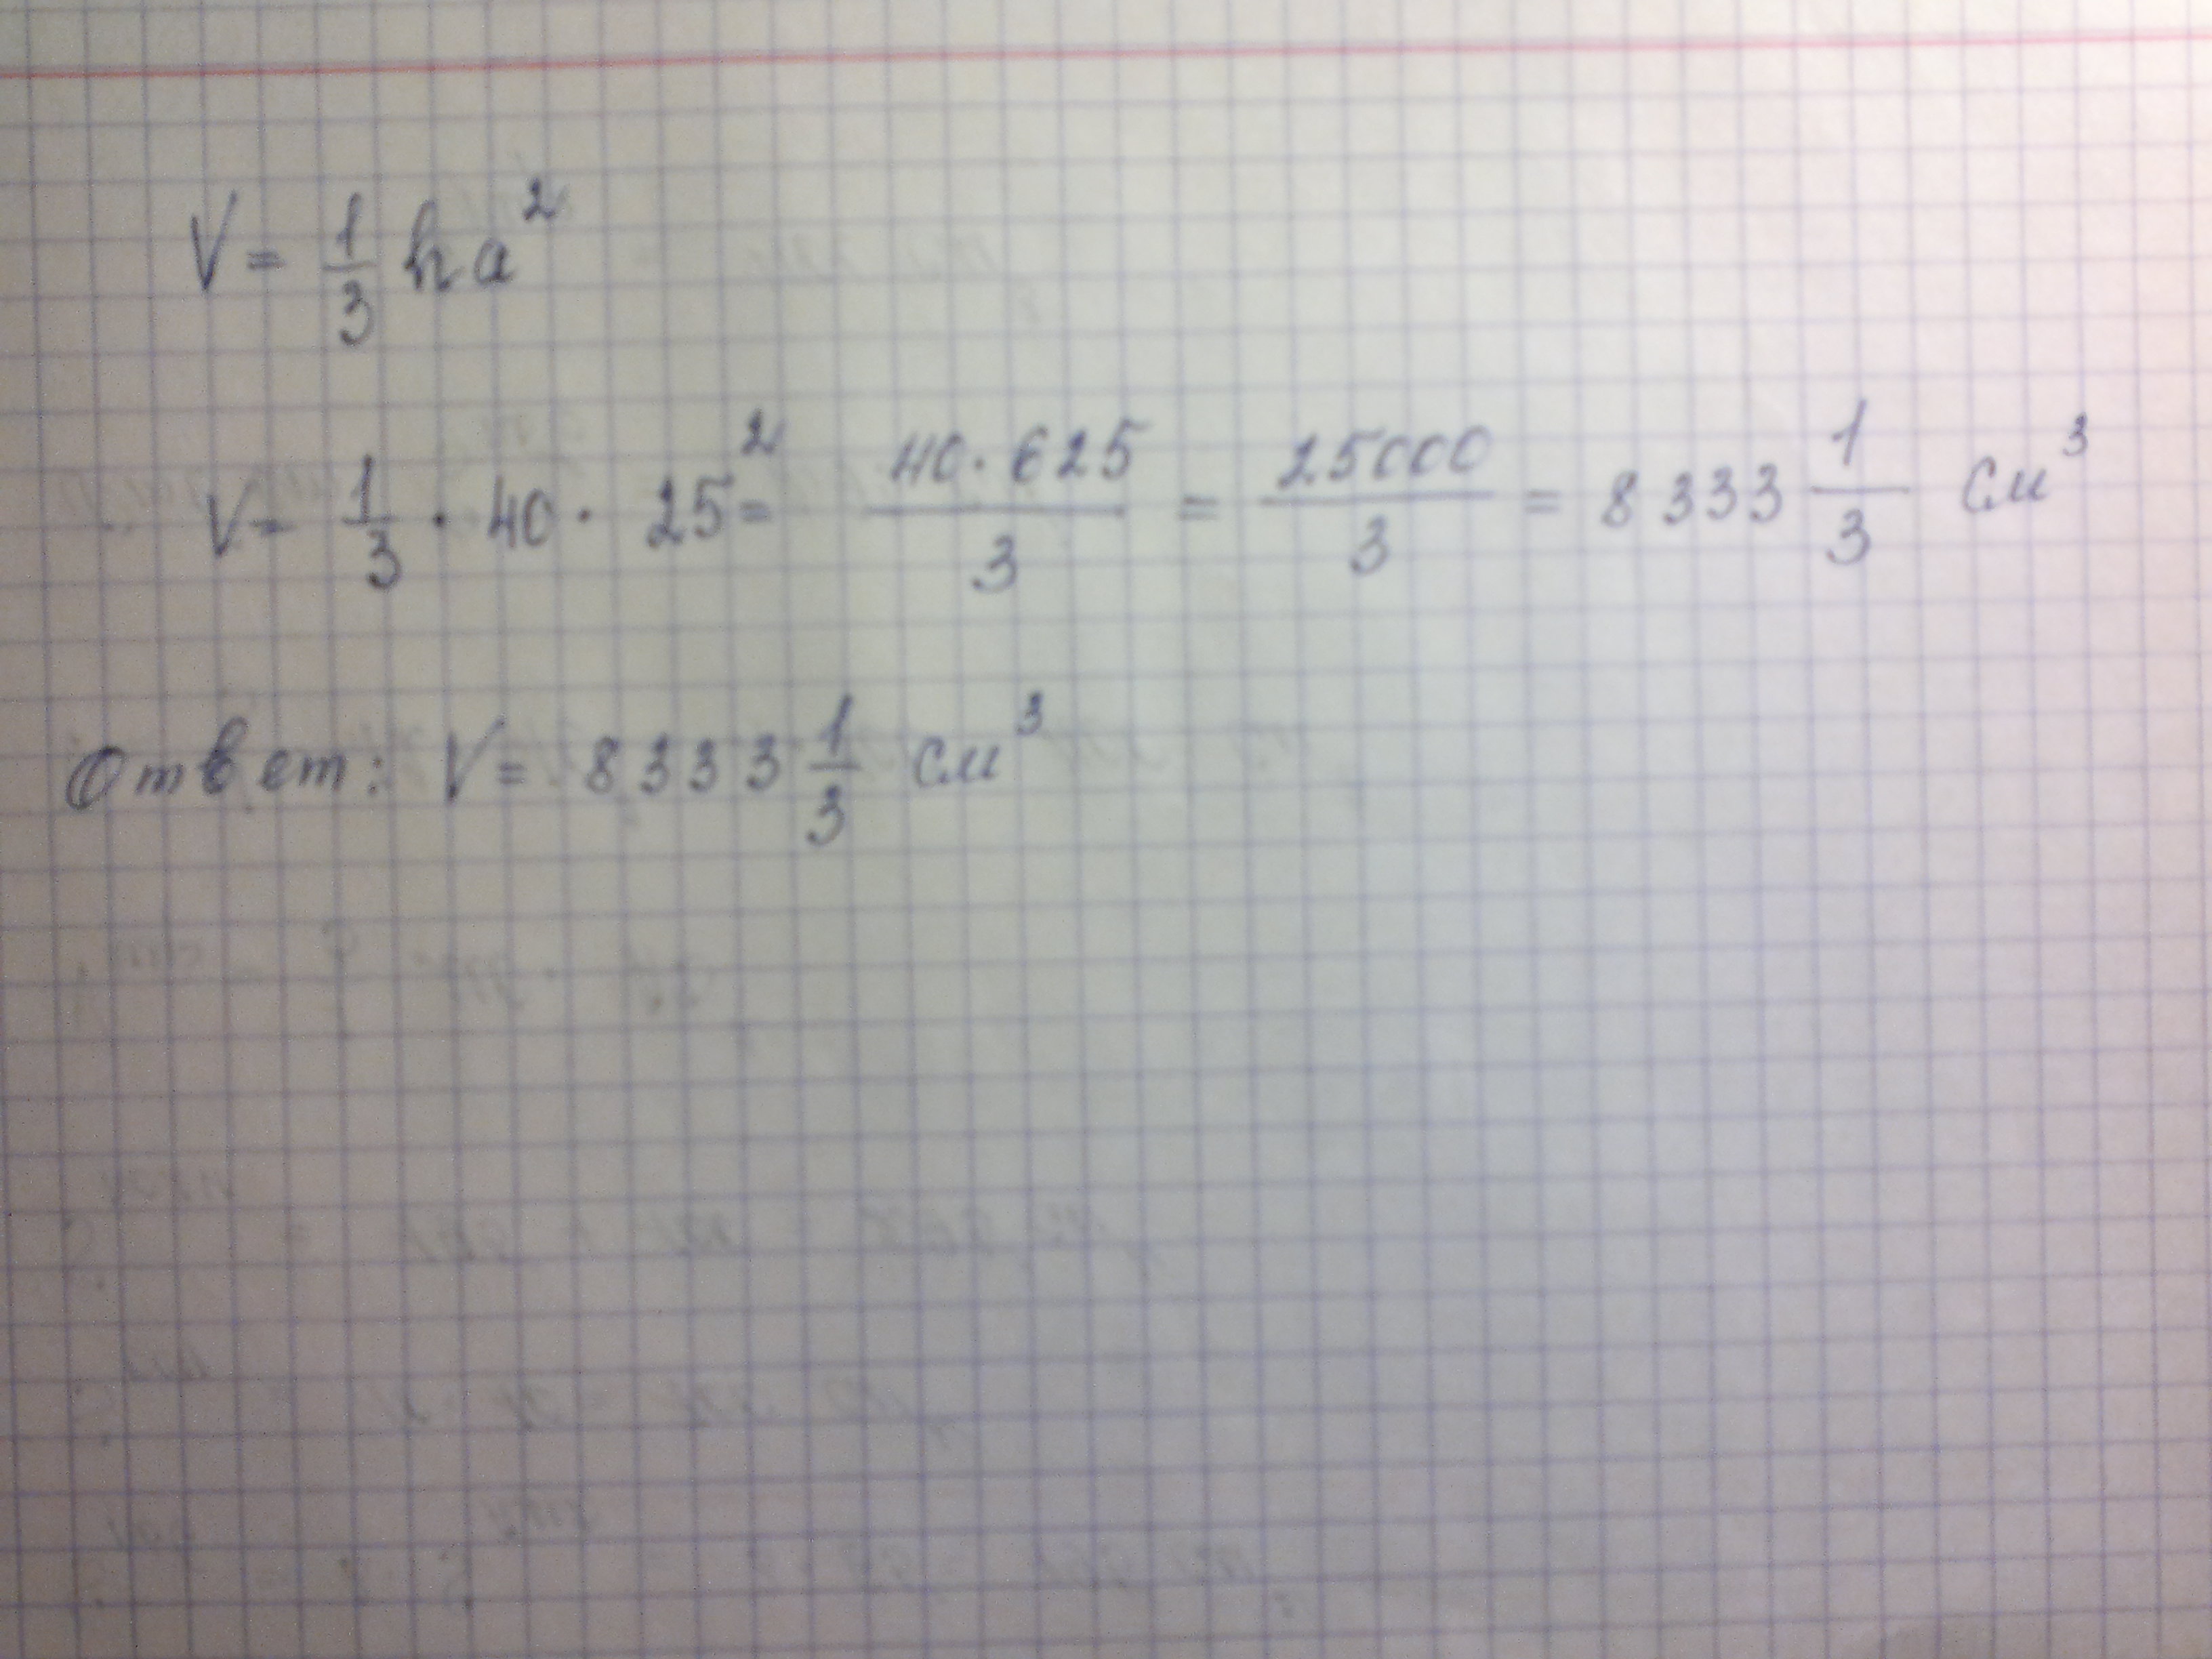 V = 1/3 ha²
V = 1/3 · 40 · 25² = 40·625/3 = 25000/3 = 8333 1/3 см³
Ответ: V = 8333 1/3 см³